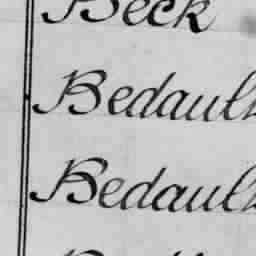 Beck
Bedault
Bedault